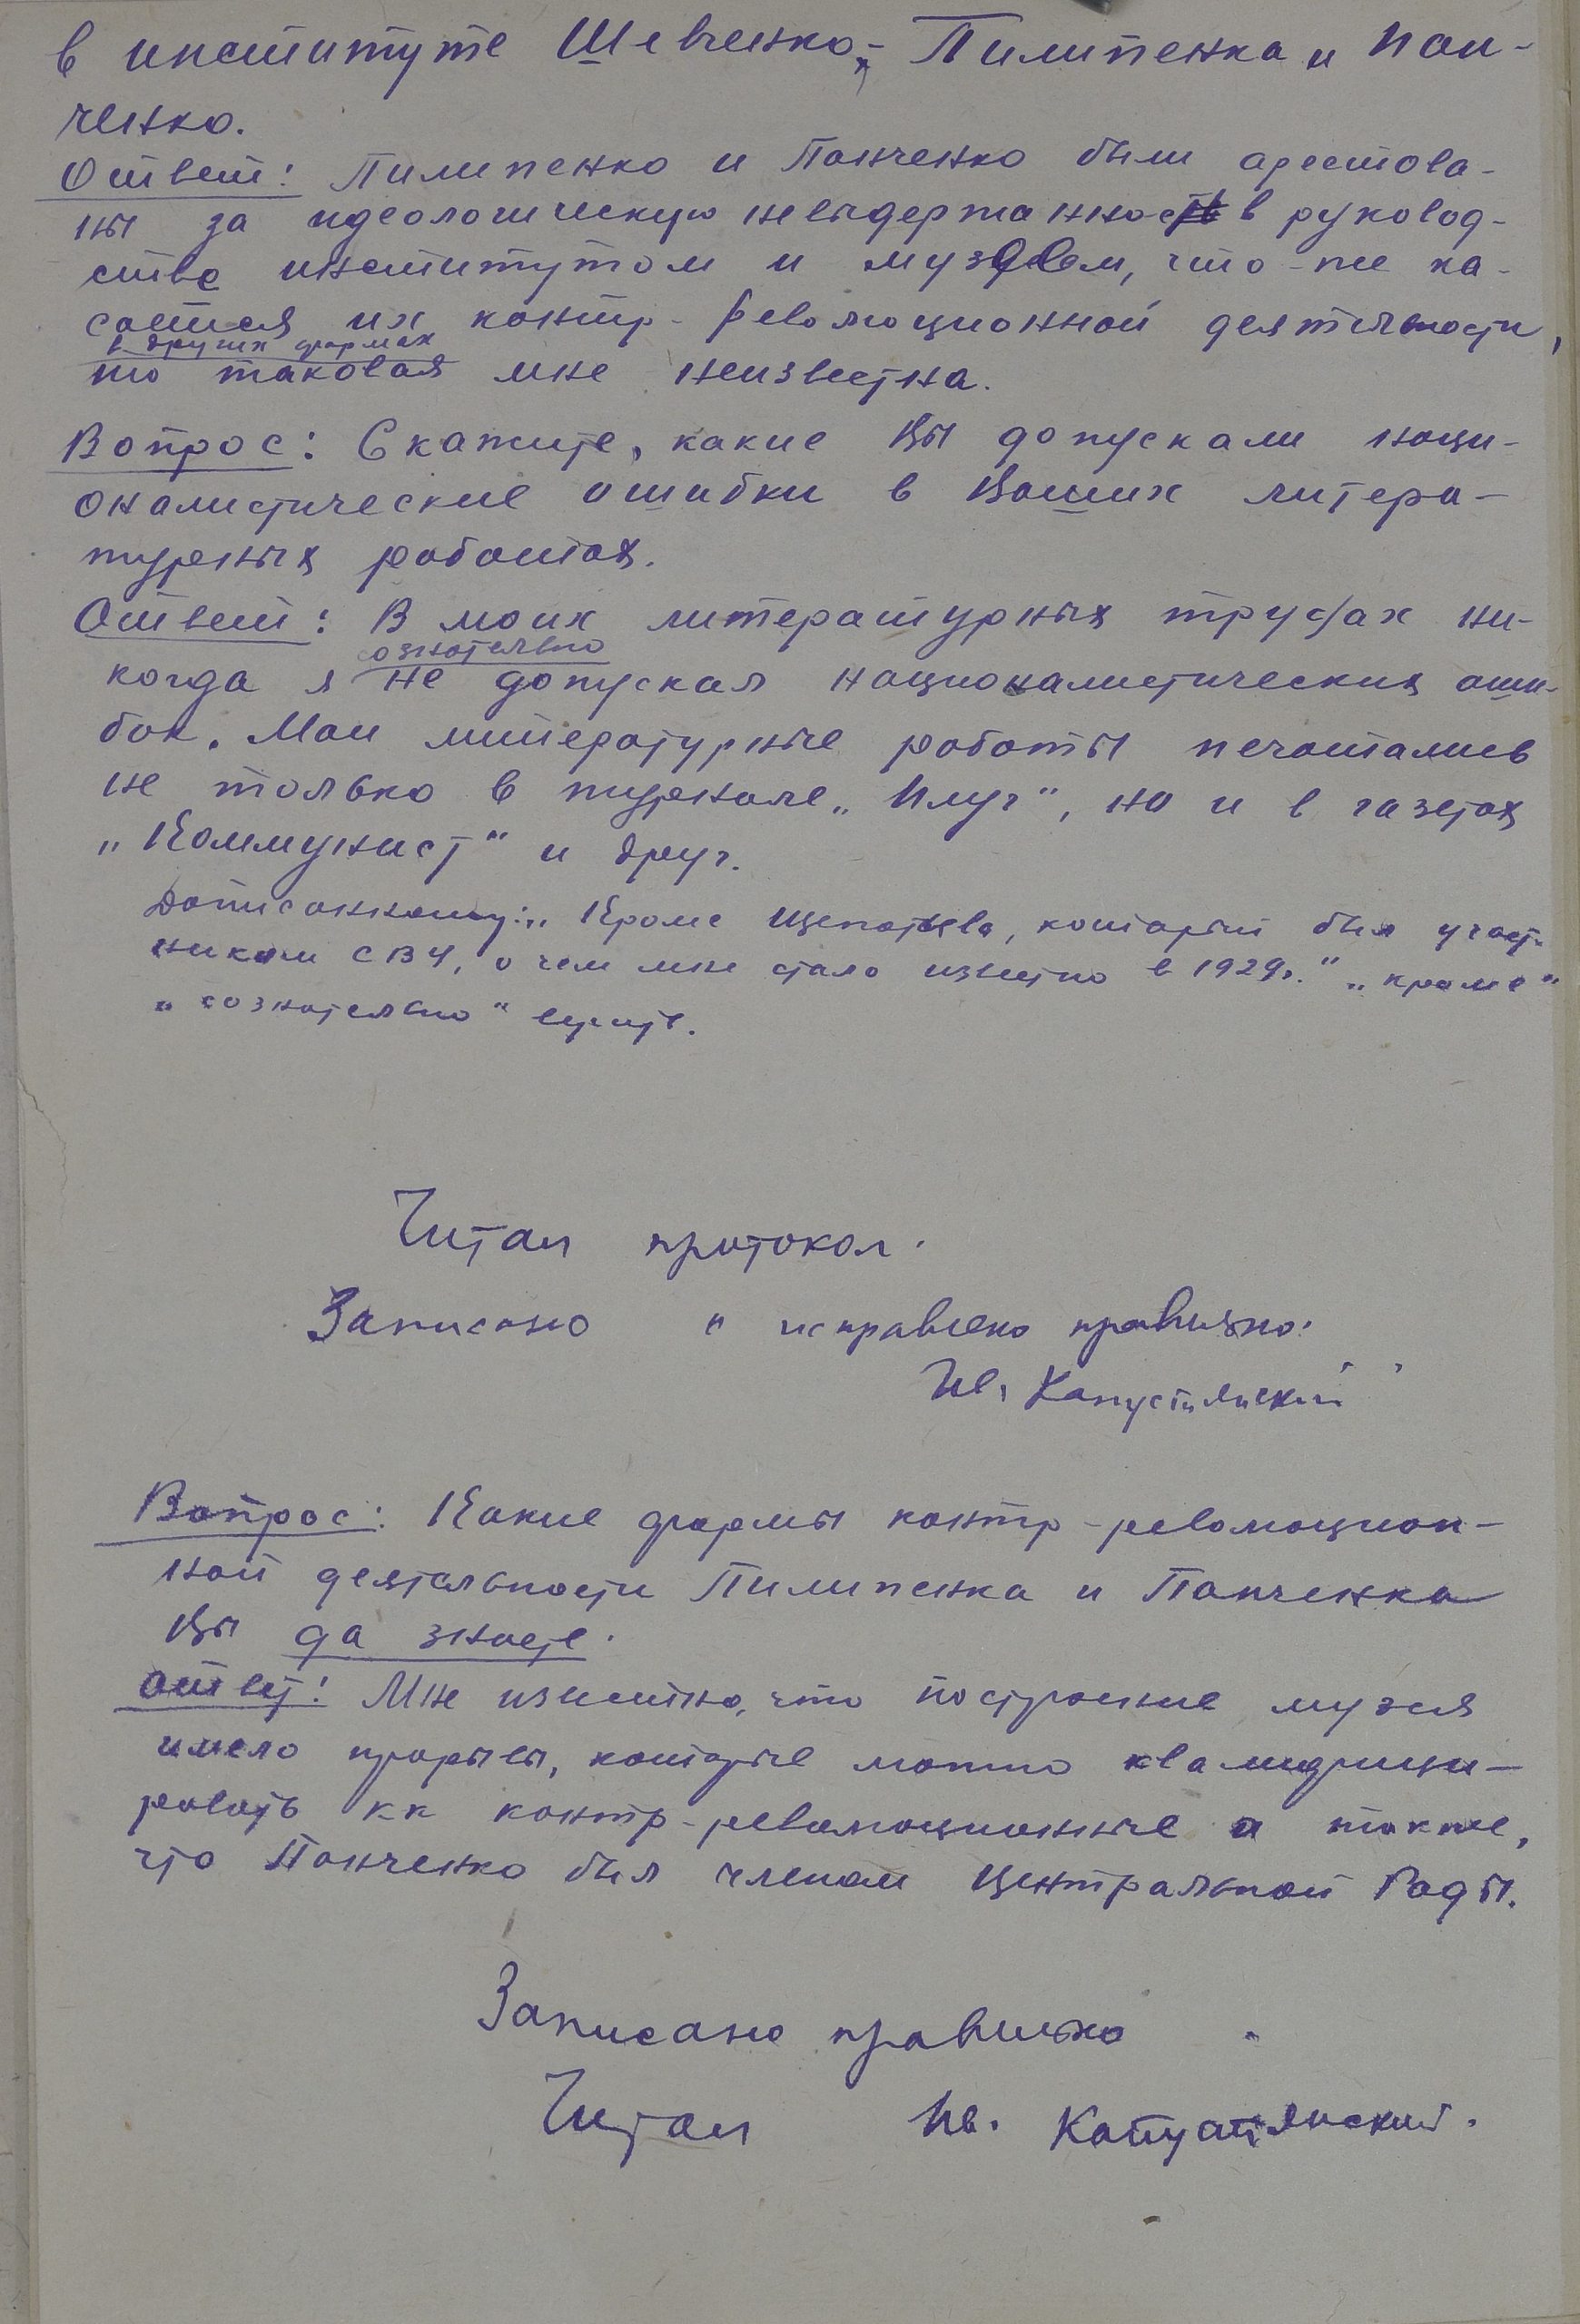 в институте Шевченко – Пилипенка и Пан-
ченко.
Ответ: Пилипенко и Панченко были арестова-
ны за идеологическую невыдержанность в руковод-
стве институтом и музеем, что-же ка-
сается их контр-революционной деятельности,
в других формах
то таковая мне неизвестна.
Вопрос: Скажите, какие Вы допускали наци-
оналистические ошибки в Ваших литера-
турных работах.
Ответ: В моих литературных трудах ни-
сознательно
когда я не допускал националистических оши-
бок. Мои литературные работы печатались
не только в журнале „Плуг“, но и в газетах
„Коммунист“ и друг.
Дописанному: „Кроме Щепотьева, который был участ-
ником СВУ, о чем мне стало известно в 1929г.“ „кроме“
„сознательно“ верить.
Читал протокол.
Записано и исправлено правильно.
Ив. Капустянский
Вопрос: Какие формы контр-революцион-
ной деятельности Пилипенка и Панченка
Вы да знаете.
Ответ: Мне известно, что построение музея
имело прорывы, которые можно квалифици-
ровать кк контр-революционные а также,
что Панченко был членом Центральной Рады.
Записано правильно.
Читал Ив. Капустянский.